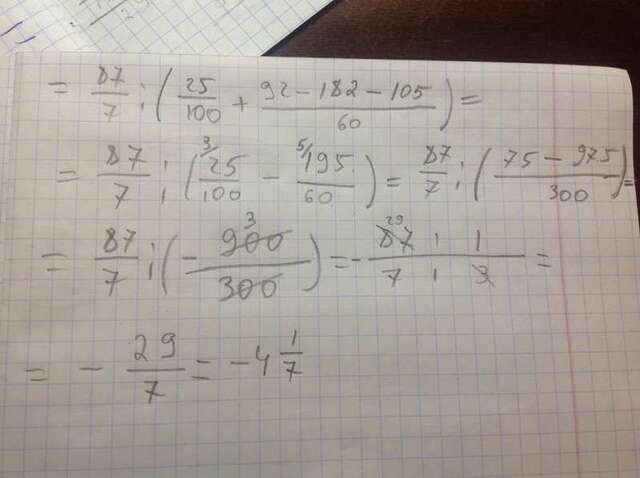 = 87/7 : (25/100 + (92 - 182 - 105)/60) =
= 87/7 : (³/25/100 - ⁵/195/60) = 87/7 : ((75 - 975)/300) =
= 87/7 : (- 900/300 3) = - (87 29 · 1)/(7 · 3) =
= - 29/7 = -4 1/7